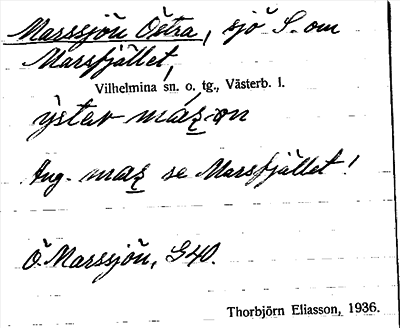 Marssjön Östra, sjö S. om
Marsfjället,
Vilhelmina sn. o. tg., Västerb. l.
ýstav maʂ-ọn
Ang. maʂ se Marsfjället!
Ö Marssjön, G40.
Thorbjörn Eliasson, 1936.